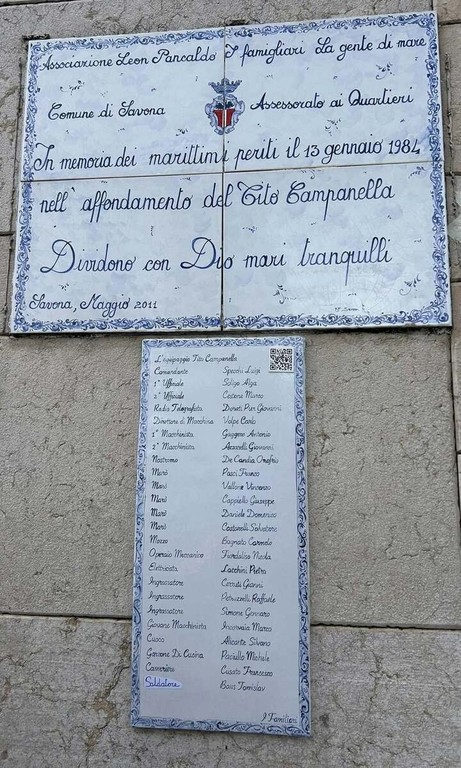 Associazione Leon Pancaldo I famigliari La gente di mare
Comune di Savona Assessorato ai Quartieri
In memoria dei marittimi periti il 13 gennaio 1984
nell' affondamento del Tito Campanella
Dividono con Dio mari tranquilli
Savona, Maggio 2011
L'equipaggio Tito Campanella
Comandante Specchi Luigi
1° Ufficiale Soligo Alga
2° Ufficiale Cestone Marco
Radio Telegrafista Donati Pier Giovanni
Direttore di Macchina Volpe Carlo
1° Macchinista Gaggero Antonio
2° Macchinista Giovanni
Nostromo De Candia Onofrio
Marò Pasci Franco
Marò Vallone Vincenzo
Marò Cappiello Giuseppe
Marò Daniele Domenico
Marò Costarelli Salvatore
Mozzo Bagnato Carmelo
Operaio Meccanico Nicola
Elettricista Lacchini Pietro
Ingrassatore Cerruti Gianni
Ingrassatore Petruzzelli Raffaele
Ingrassatore Simone Gennaro
Giovane Macchinista Incorvaia Marco
Cuoco Alicante Silvano
Garzone Di Cucina Paciullo Michele
Cameriere Cusato Francesco
Saldatore Bavs Tomislav
I Familiari